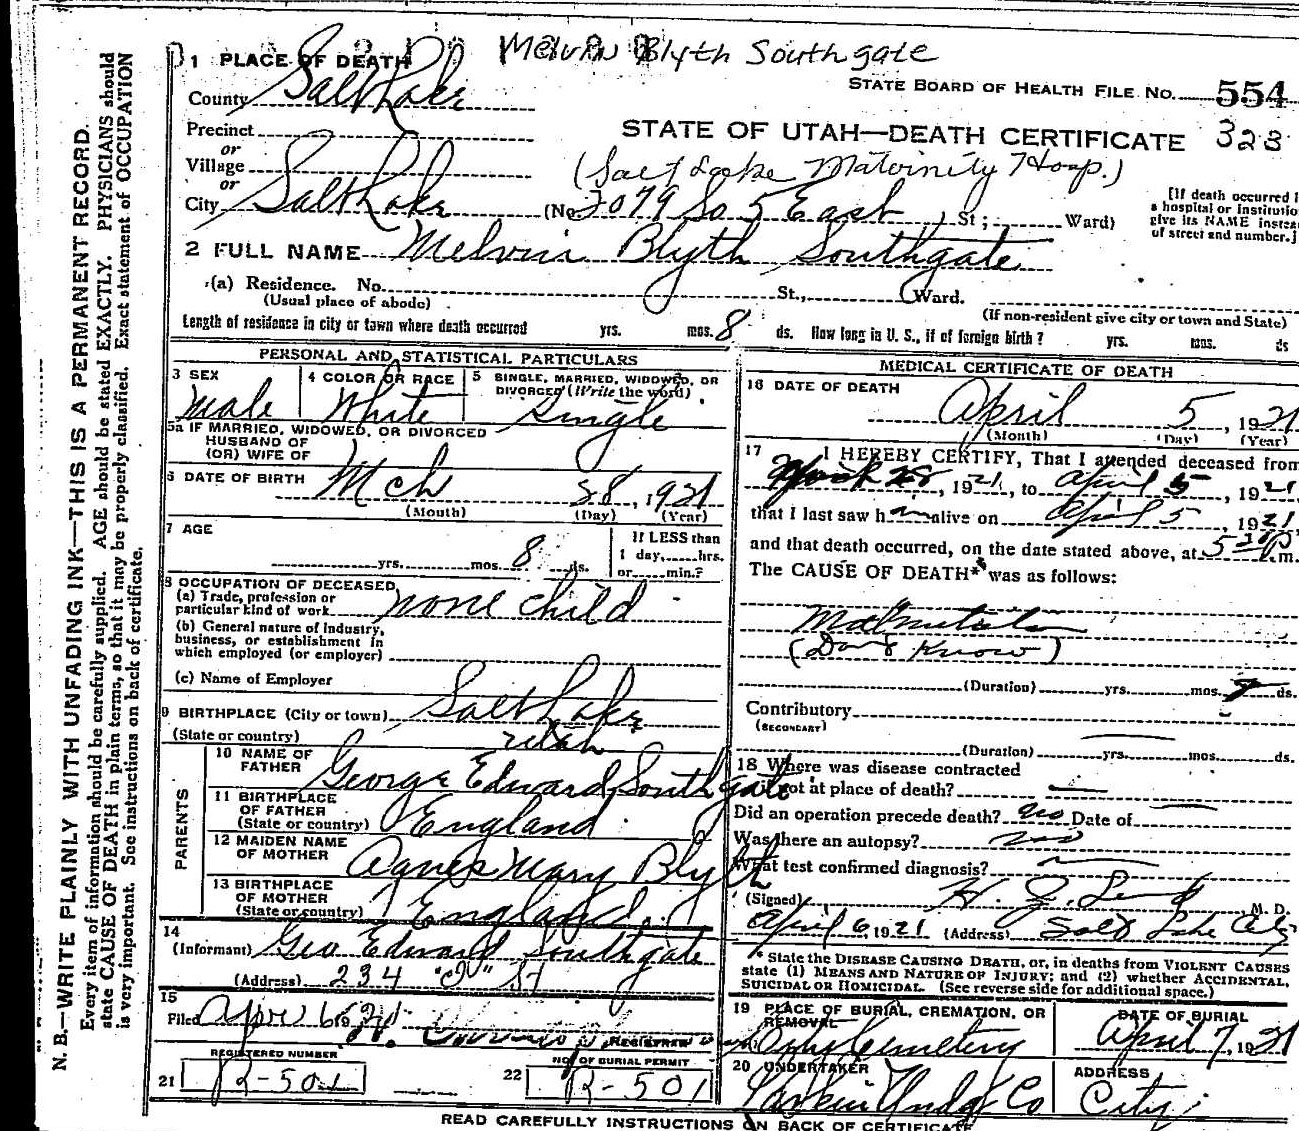 Melvin Blyth Southgate
1 PLACE OF DEATH
STATE BOARD OF HEALTH FILE NO. 554
County Salt Lake
STATE OF UTAH—DEATH CERTIFICATE 323
Precinct
or
Village
(Salt Lake Maternity Hosp.)
or
City Salt Lake (No 2079 So 5 East St; Ward)
[If death occurred
a hospital or institution
give its NAME instead
of street and number.]
2 FULL NAME Melvin Blyth Southgate
(a) Residence. No. St., Ward.
(Usual place of abode)
(If non-resident give city or town and State)
Length of residence in city or town where death occurred yrs. mos. 8 ds. How long in U. S., if of foreign birth? yrs. mos. ds
PERSONAL AND STATISTICAL PARTICULARS
3 SEX
male
4 COLOR OR RACE
White
5 SINGLE, MARRIED, WIDOWED, OR
DIVORCED (Write the word)
Single
5a IF MARRIED, WIDOWED, OR DIVORCED
HUSBAND OF
(OR) WIFE OF
6 DATE OF BIRTH Mch 28, 1921
(Month) (Day) (Year)
7 AGE
yrs. mos. 8 ds.
If LESS than
1 day, hrs.
or min.?
8 OCCUPATION OF DECEASED
(a) Trade, profession or
particular kind of work none child
(b) General nature of Industry,
business, or establishment in
which employed (or employer)
(c) Name of Employer
9 BIRTHPLACE (City or town) Salt Lake
(State or country) Utah
PARENTS
10 NAME OF
FATHER George Edward Southgate
11 BIRTHPLACE
OF FATHER
(State or country) England
12 MAIDEN NAME
OF MOTHER Agnes Mary Blyth
13 BIRTHPLACE
OF MOTHER
(State or country) England
14
(Informant) Geo Edward Southgate
(Address) 234 St
15
Filed Apr 6 1921
REGISTRAR
REGISTERED NUMBER
21 R-501
NO. OF BURIAL PERMIT
22 R-501
MEDICAL CERTIFICATE OF DEATH
16 DATE OF DEATH
April 5, 1921
(Month) (Day) (Year)
17 I HEREBY CERTIFY, That I attended deceased from
28, 1921, to April 5, 1921
that I last saw h alive on April 5, 1921
and that death occurred, on the date stated above, at 5 30 P.m.
The CAUSE OF DEATH* was as follows:
Malnutrition
(Dont Know)
(Duration) yrs. mos. ds.
Contributory
(SECONDARY)
(Duration) yrs. mos. ds.
18 Where was disease contracted
if not at place of death?
Did an operation precede death? no Date of
Was there an autopsy? no
What test confirmed diagnosis?
(Signed) M. D.
April 6, 1921 (Address) Salt Lake City
* State the DISEASE CAUSING DEATH, or, in deaths from VIOLENT CAUSES
state (1) MEANS AND NATURE OF INJURY; and (2) whether ACCIDENTAL,
SUICIDAL OR HOMICIDAL. (See reverse side for additional space.)
19 PLACE OF BURIAL, CREMATION, OR
REMOVAL
City Cemetery
DATE OF BURIAL
April 7, 1921
20 UNDERTAKER
Larkin Undg Co
ADDRESS
City
READ CAREFULLY INSTRUCTIONS ON BACK OF CERTIFICATE
N. B.—WRITE PLAINLY WITH UNFADING INK—THIS IS A PERMANENT RECORD.
Every item of information should be carefully supplied. AGE should be stated EXACTLY. PHYSICIANS should
state CAUSE OF DEATH in plain terms, so that it may be properly classified. Exact statement of OCCUPATION
is very important. See instructions on back of certificate.